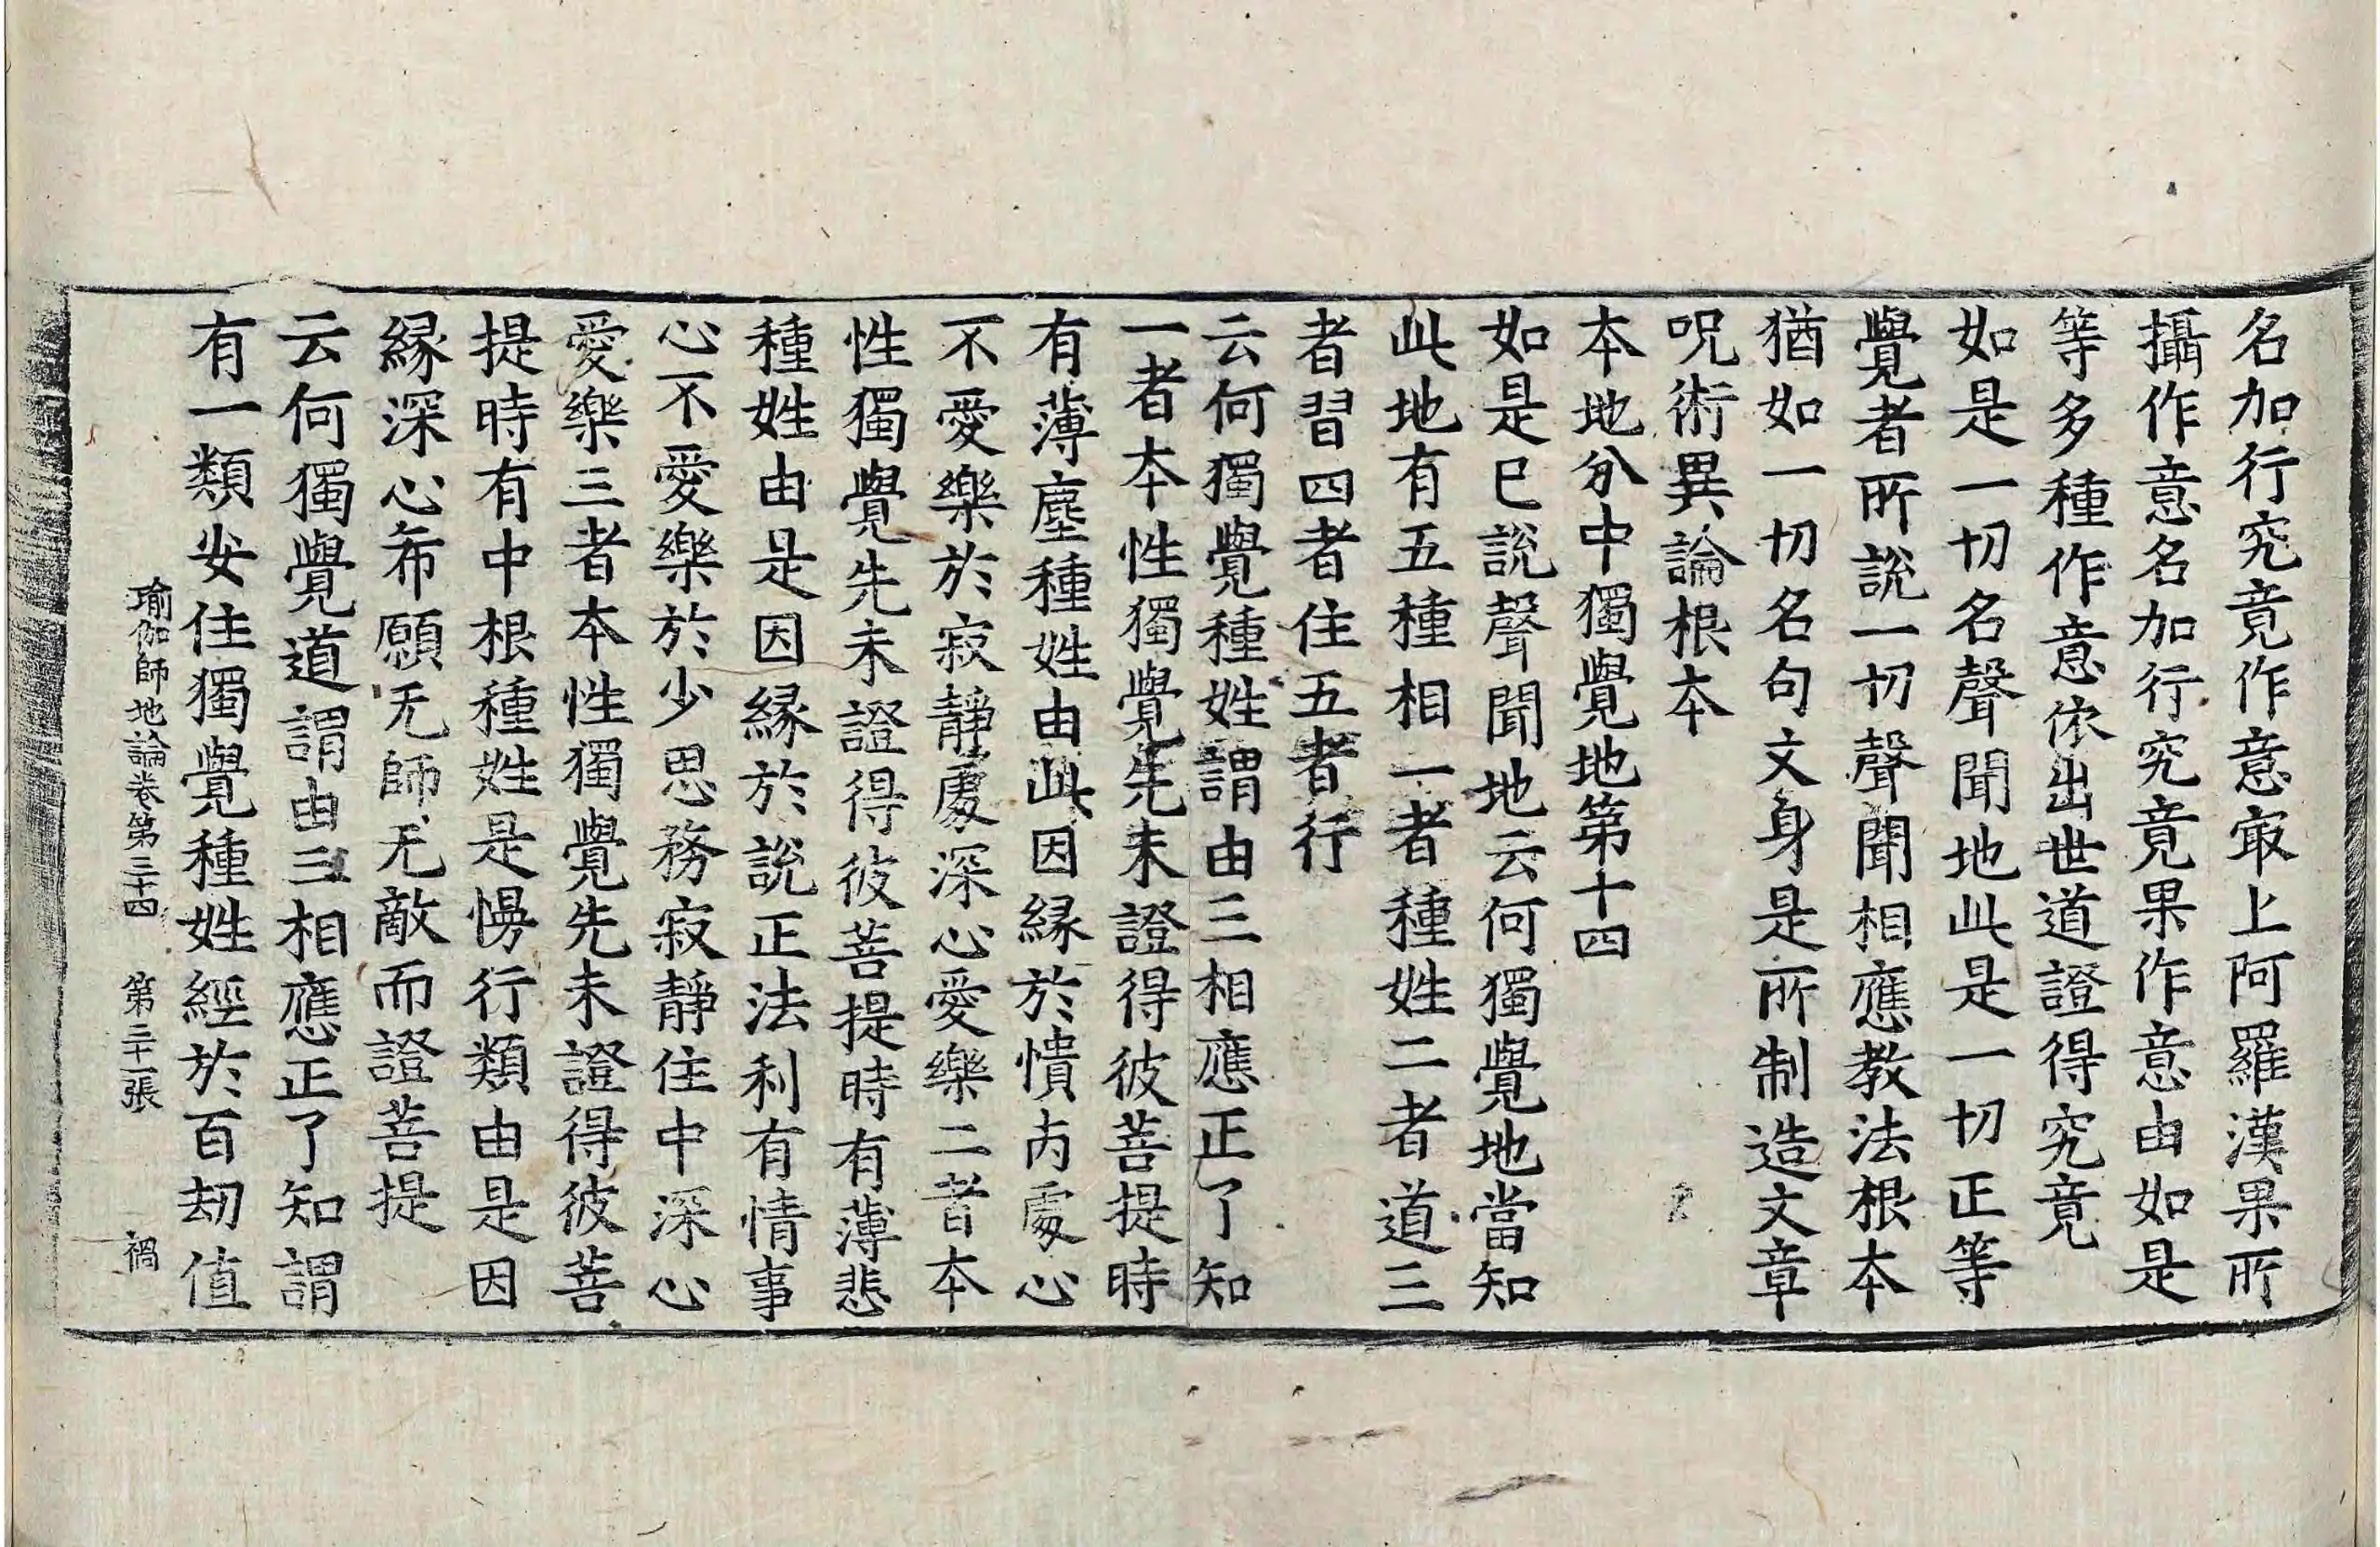 名加行究竟作意㝡上阿羅漢果所
攝作意名加行究竟果作意由如是
等多種作意依出世道證得究竟
如是一切名聲聞地此是一切正等
覺者所說一切聲聞相應教法根本
猶如一切名句文身是所制造文章
呪術異論根本
本地分中獨覺地第十四
如是已說聲聞地云何獨覺地當知
此地有五種相一者種姓二者道三
者習四者住五者行
云何獨覺種姓謂由三相應正了知
一者本性獨覺先未證得彼菩提時
有薄塵種姓由此因緣於憒丙處心
不愛樂於寂靜處深心愛樂二者本
性獨覺先未證得彼菩提時有薄悲
種姓由是因緣於說正法利有情事
心不愛樂於少思務寂靜住中深心
愛樂三者本性獨覺先未證得彼菩
提時有中根種姓是慢行類由是因
緣深心希願无師无敵而證菩提
云何獨覺道謂由三相應正了知謂
有一類安住獨覺種姓經於百劫值
瑜伽師地論卷第三十四 第三十一張 禍